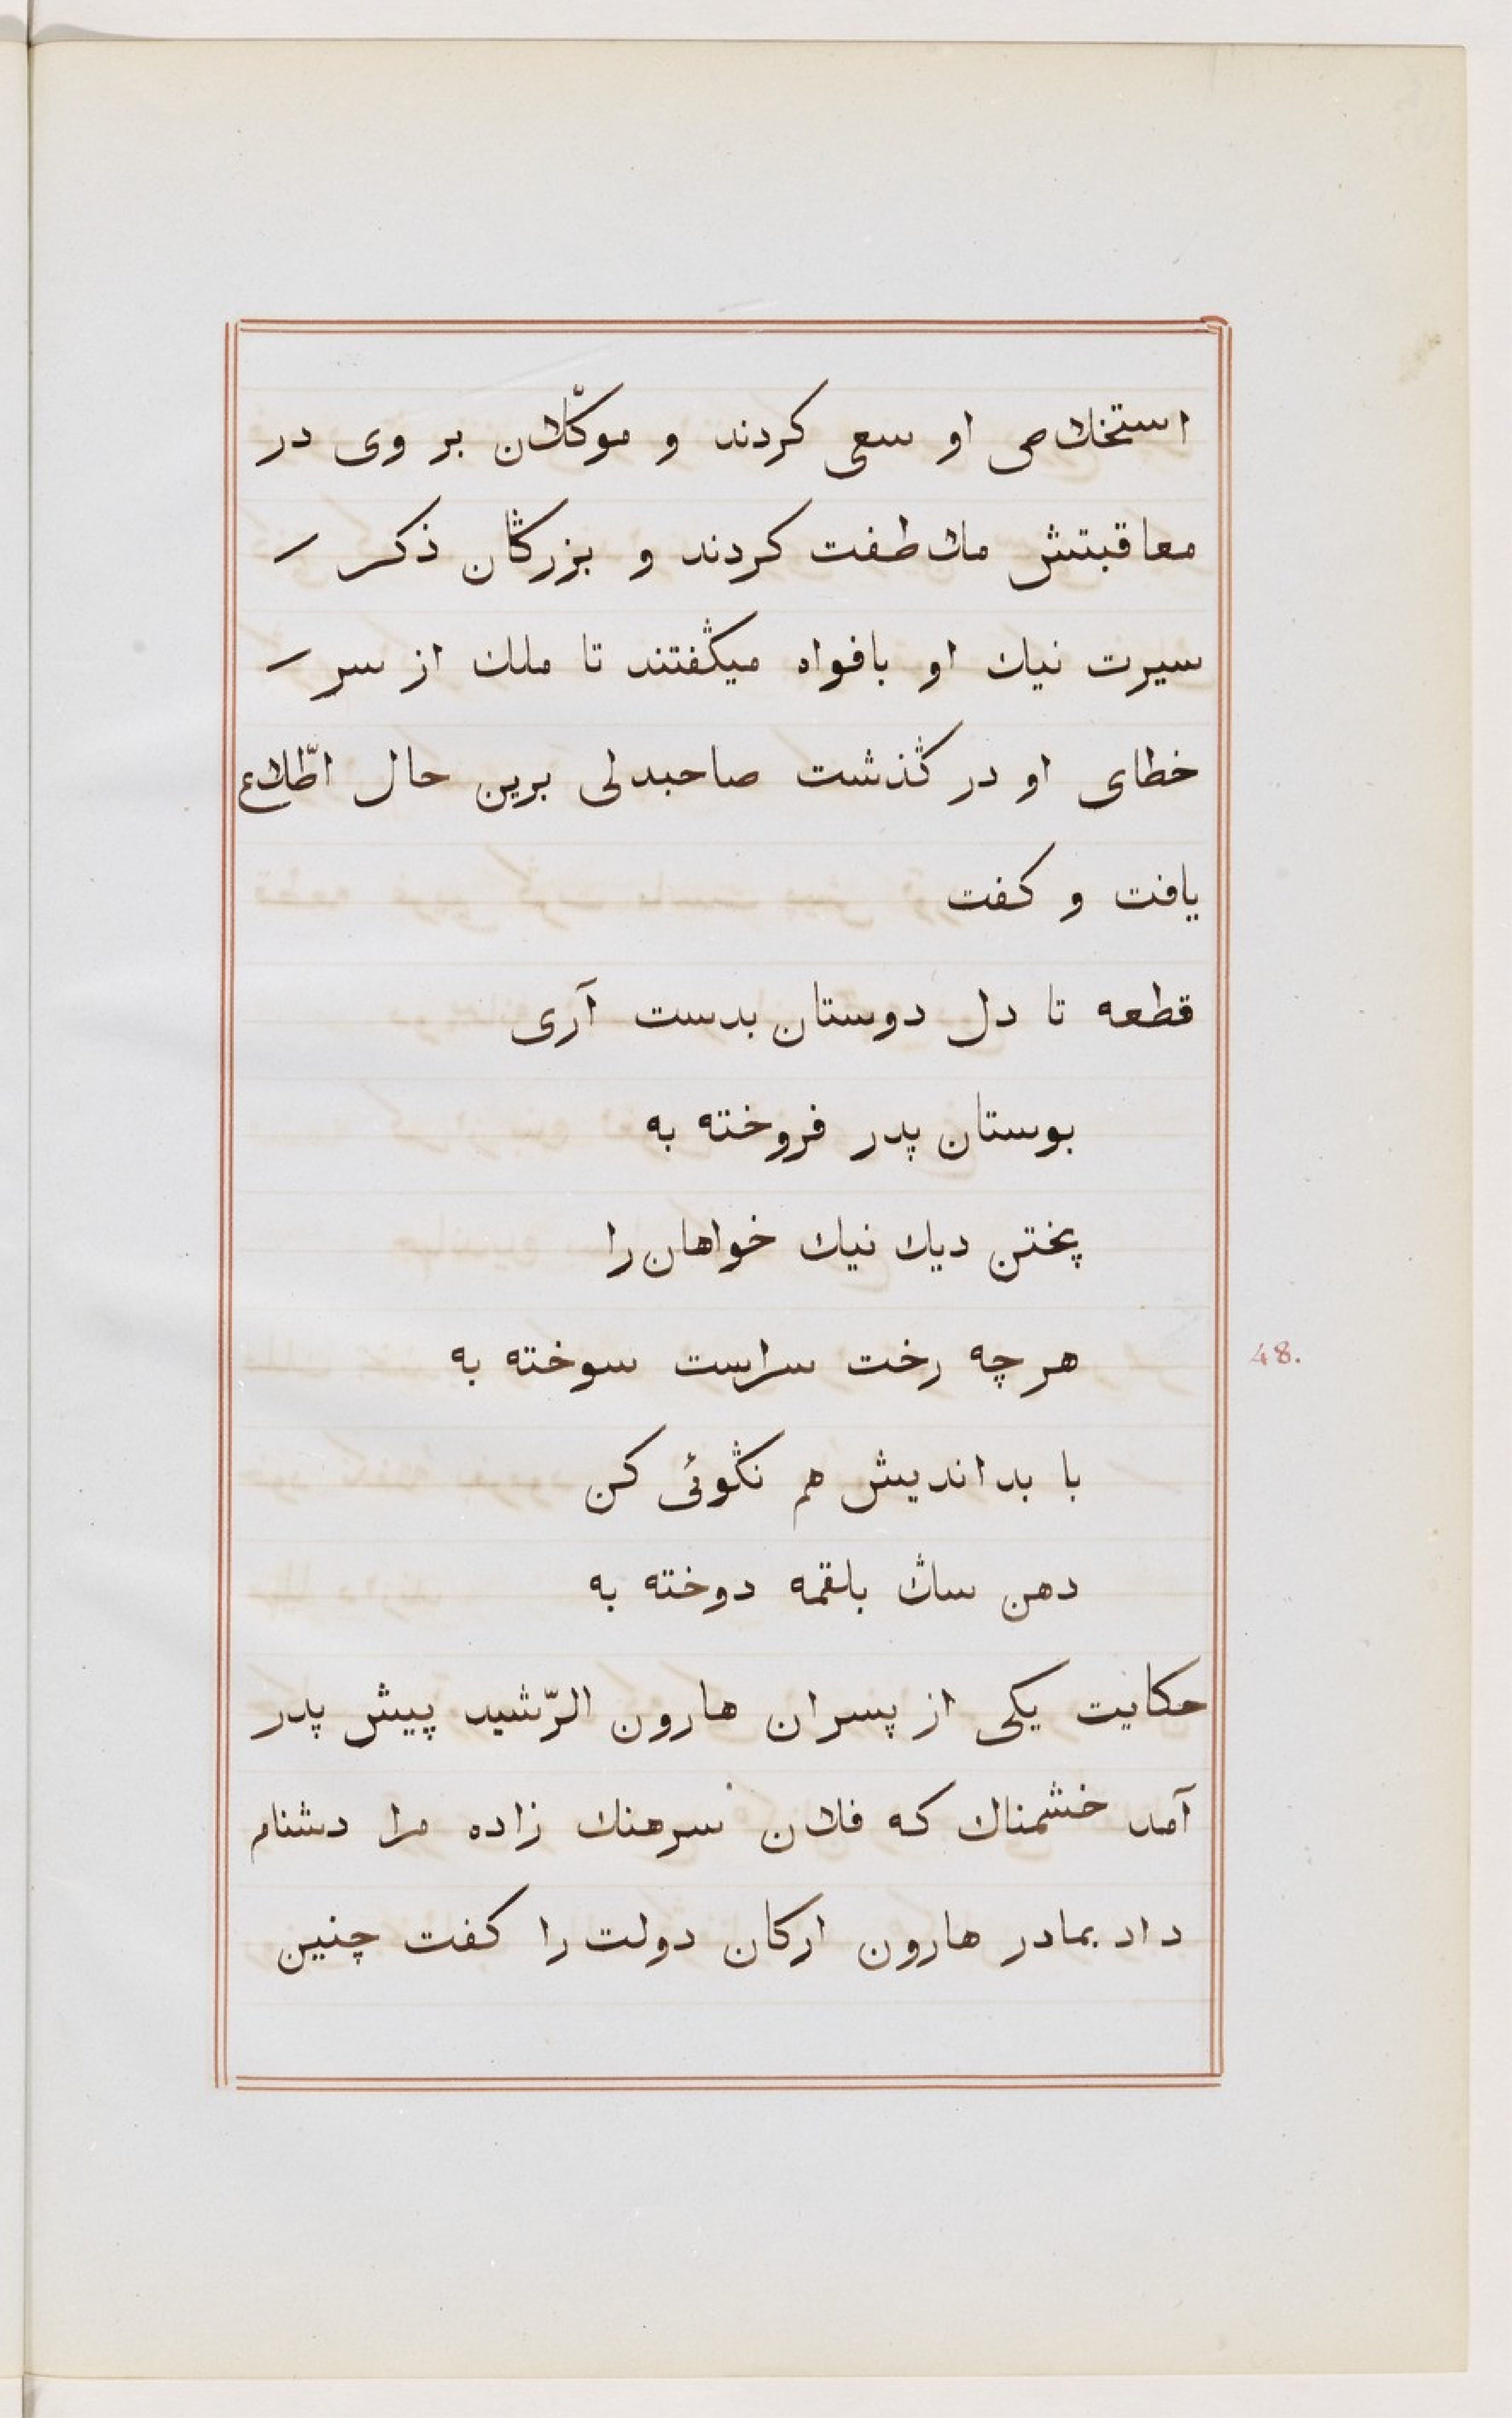 استخلاص او سعی کردند و موکّلان بر وی در
معاقبتش ملاطفت کردند و بزرگان ذکر
سیرت نیك او بافواه میگفتند تا ملك از سر
خطای او در گذشت صاحبدلی برین حال اطّلاع
یافت و کفت
قطعه تا دل دوستان بدست آری
بوستان پدر فروخته به
پختن دیك نیك خواهان را
هر چه رخت سراست سوخته به
48.
با بد اندیش هم نگوئی کن
دهن سگ بلقمه دوخته به
حکایت یکی از پسران هارون الرّشید پیش پدر
آمد خشمناك که فلان سرهنك زاده مرا دشنام
داد بمادر هارون ارکان دولت را کفت چنین